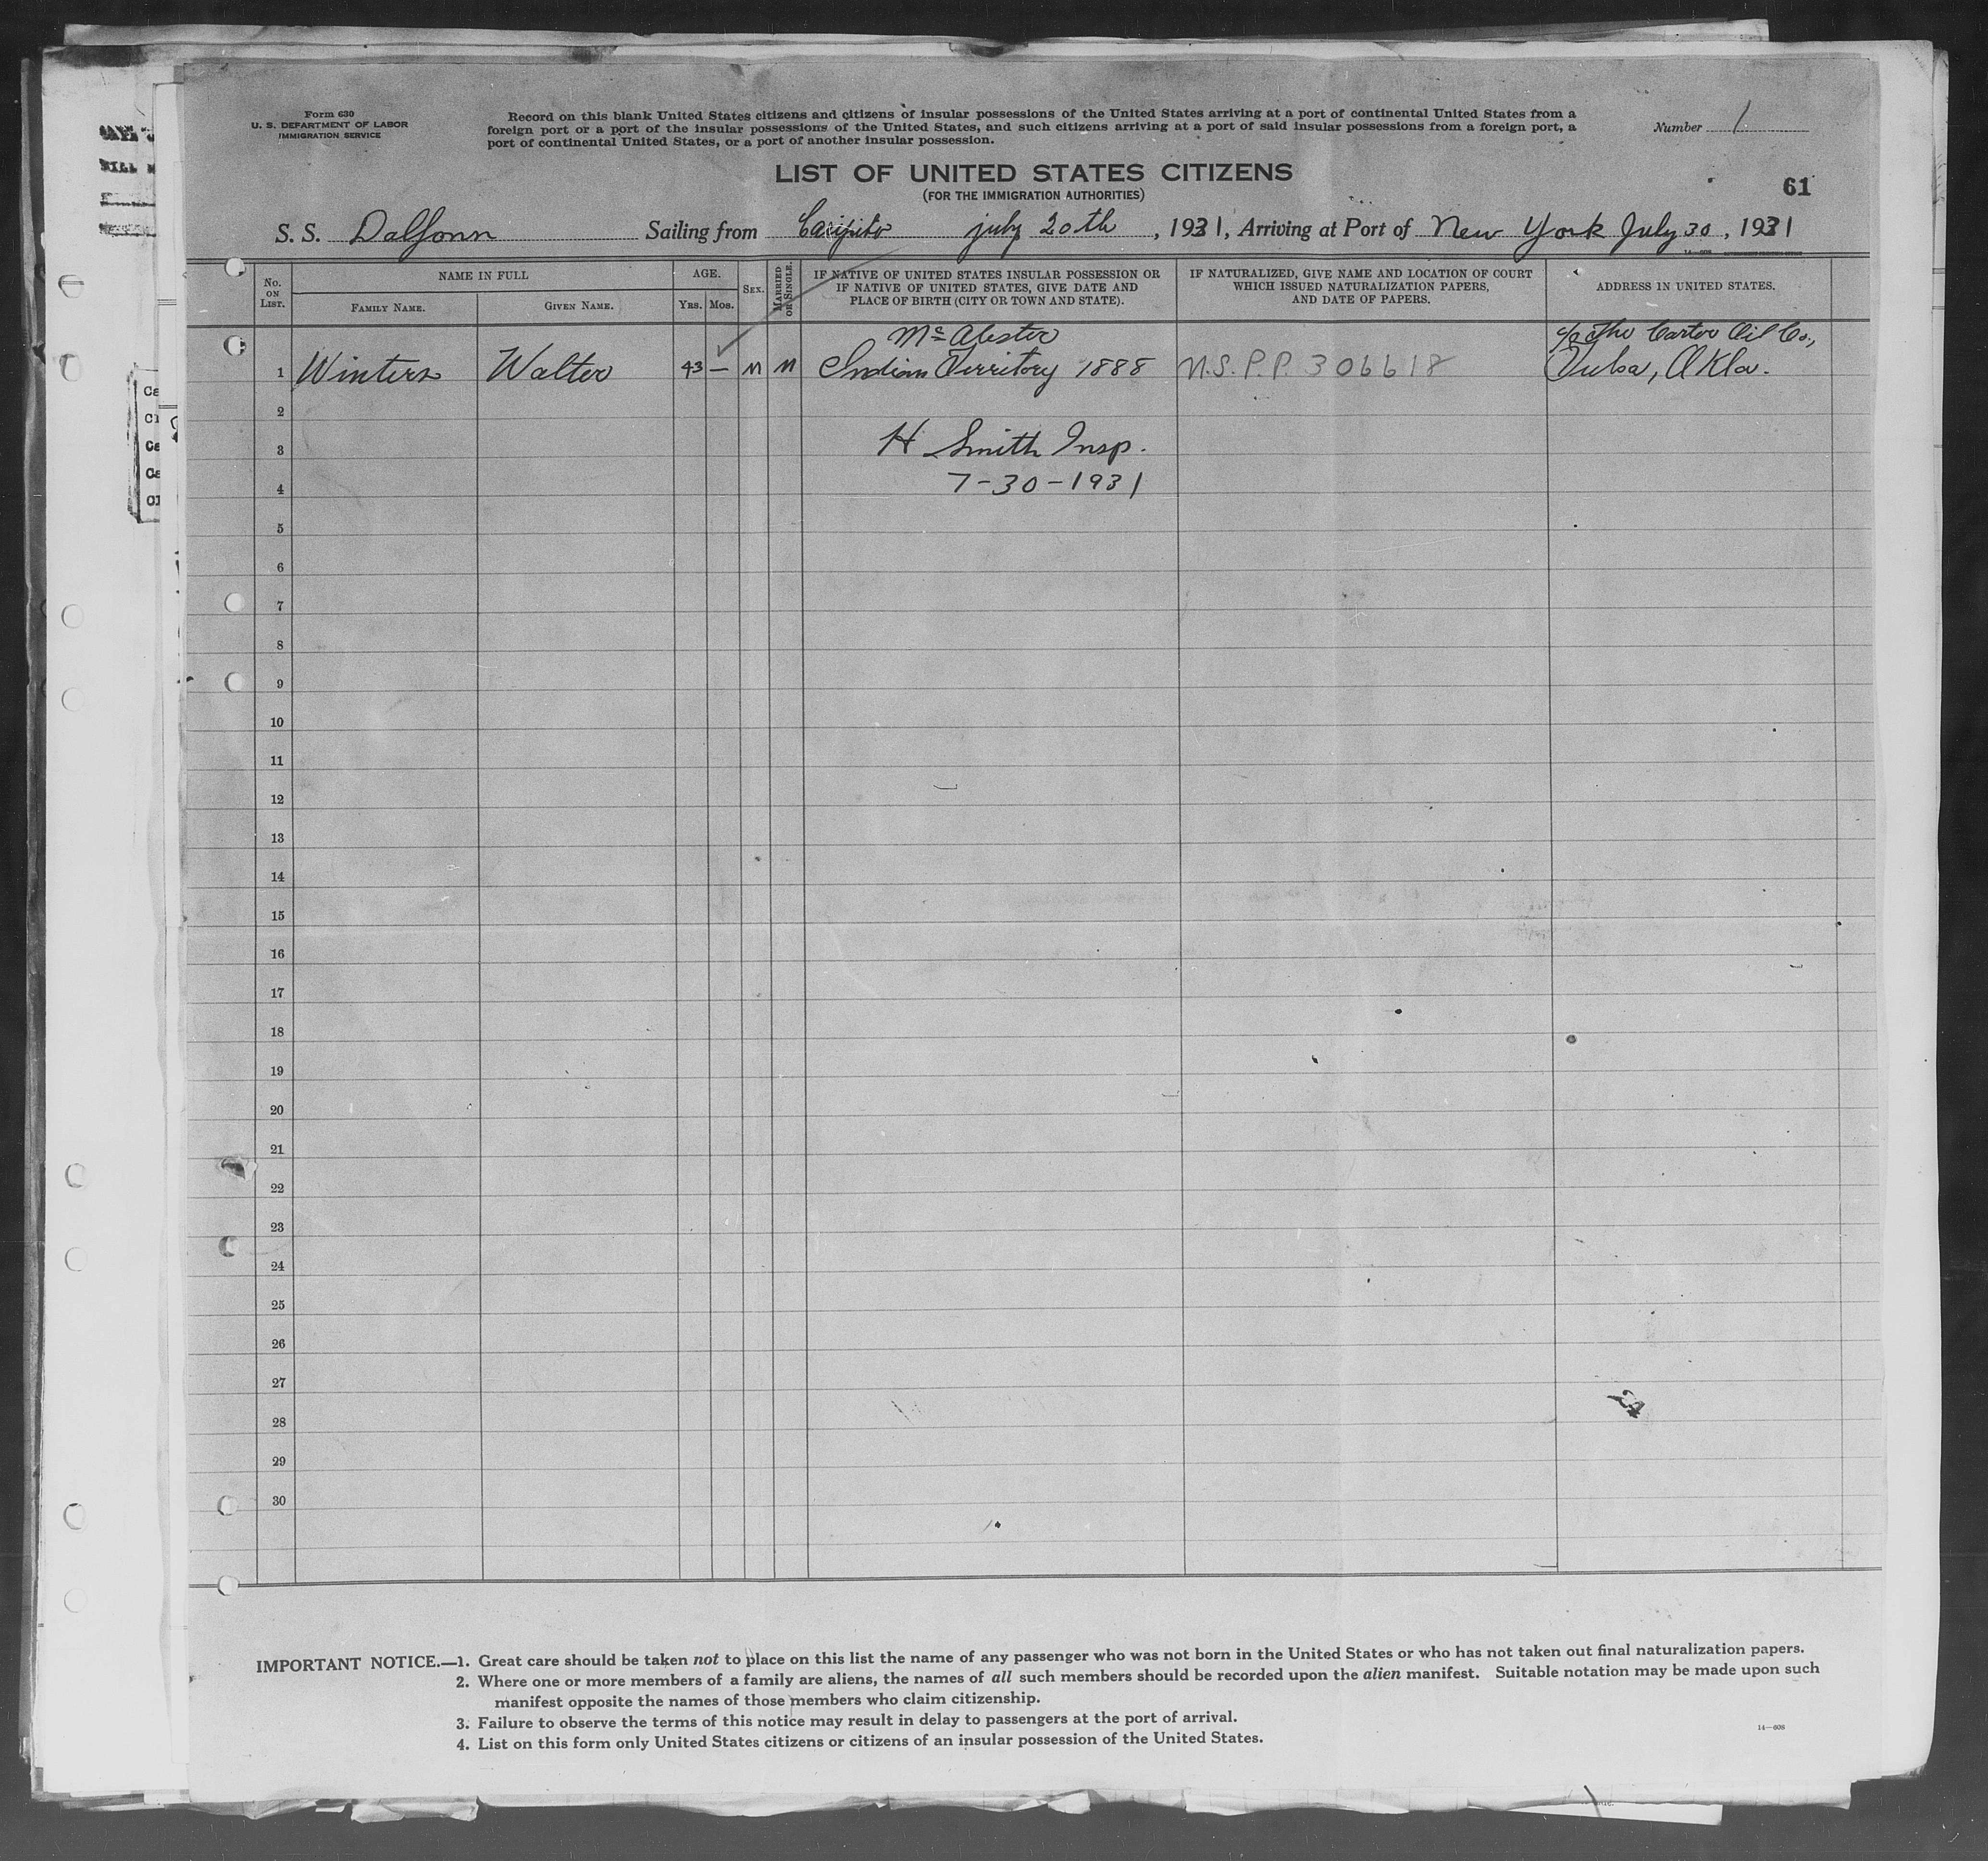 Form 630
U. S. DEPARTMENT OF LABOR
IMMIGRATION SERVICE
Record on this blank United States citizens and citizens of insular possessions of the United States arriving at a port of continental United States from a
foreign port or a port of the insular possessions of the United States, and such citizens arriving at a port of said insular possessions from a foreign port, a
port of continental United States, or a port of another insular possession.
Number 1
LIST OF UNITED STATES CITIZENS
(FOR THE IMMIGRATION AUTHORITIES)
61
S. S. Dalfonn Sailing from Caripito july 20th, 1931, Arriving at Port of New York July 30, 1931
No. ON LIST.
NAME IN FULL
FAMILY NAME.
GIVEN NAME.
AGE.
YRS. MOS.
SEX.
MARRIED OR SINGLE.
IF NATIVE OF UNITED STATES INSULAR POSSESSION OR
IF NATIVE OF UNITED STATES, GIVE DATE AND
PLACE OF BIRTH (CITY OR TOWN AND STATE).
IF NATURALIZED, GIVE NAME AND LOCATION OF COURT
WHICH ISSUED NATURALIZATION PAPERS,
AND DATE OF PAPERS.
ADDRESS IN UNITED STATES.
Mc Alester
c/o The Carter Oil Co.,
1 Winters Walter 43 — M M Indian Territory 1888 N.S.P.P. 306618 Tulsa, Okla.
2
3 H Smith Insp.
4 7-30-1931
5
6
7
8
9
10
11
12
13
14
15
16
17
18
19
20
21
22
23
24
25
26
27
28
29
30
IMPORTANT NOTICE.—1. Great care should be taken not to place on this list the name of any passenger who was not born in the United States or who has not taken out final naturalization papers.
2. Where one or more members of a family are aliens, the names of all such members should be recorded upon the alien manifest. Suitable notation may be made upon such
manifest opposite the names of those members who claim citizenship.
3. Failure to observe the terms of this notice may result in delay to passengers at the port of arrival.
4. List on this form only United States citizens or citizens of an insular possession of the United States.
14—608